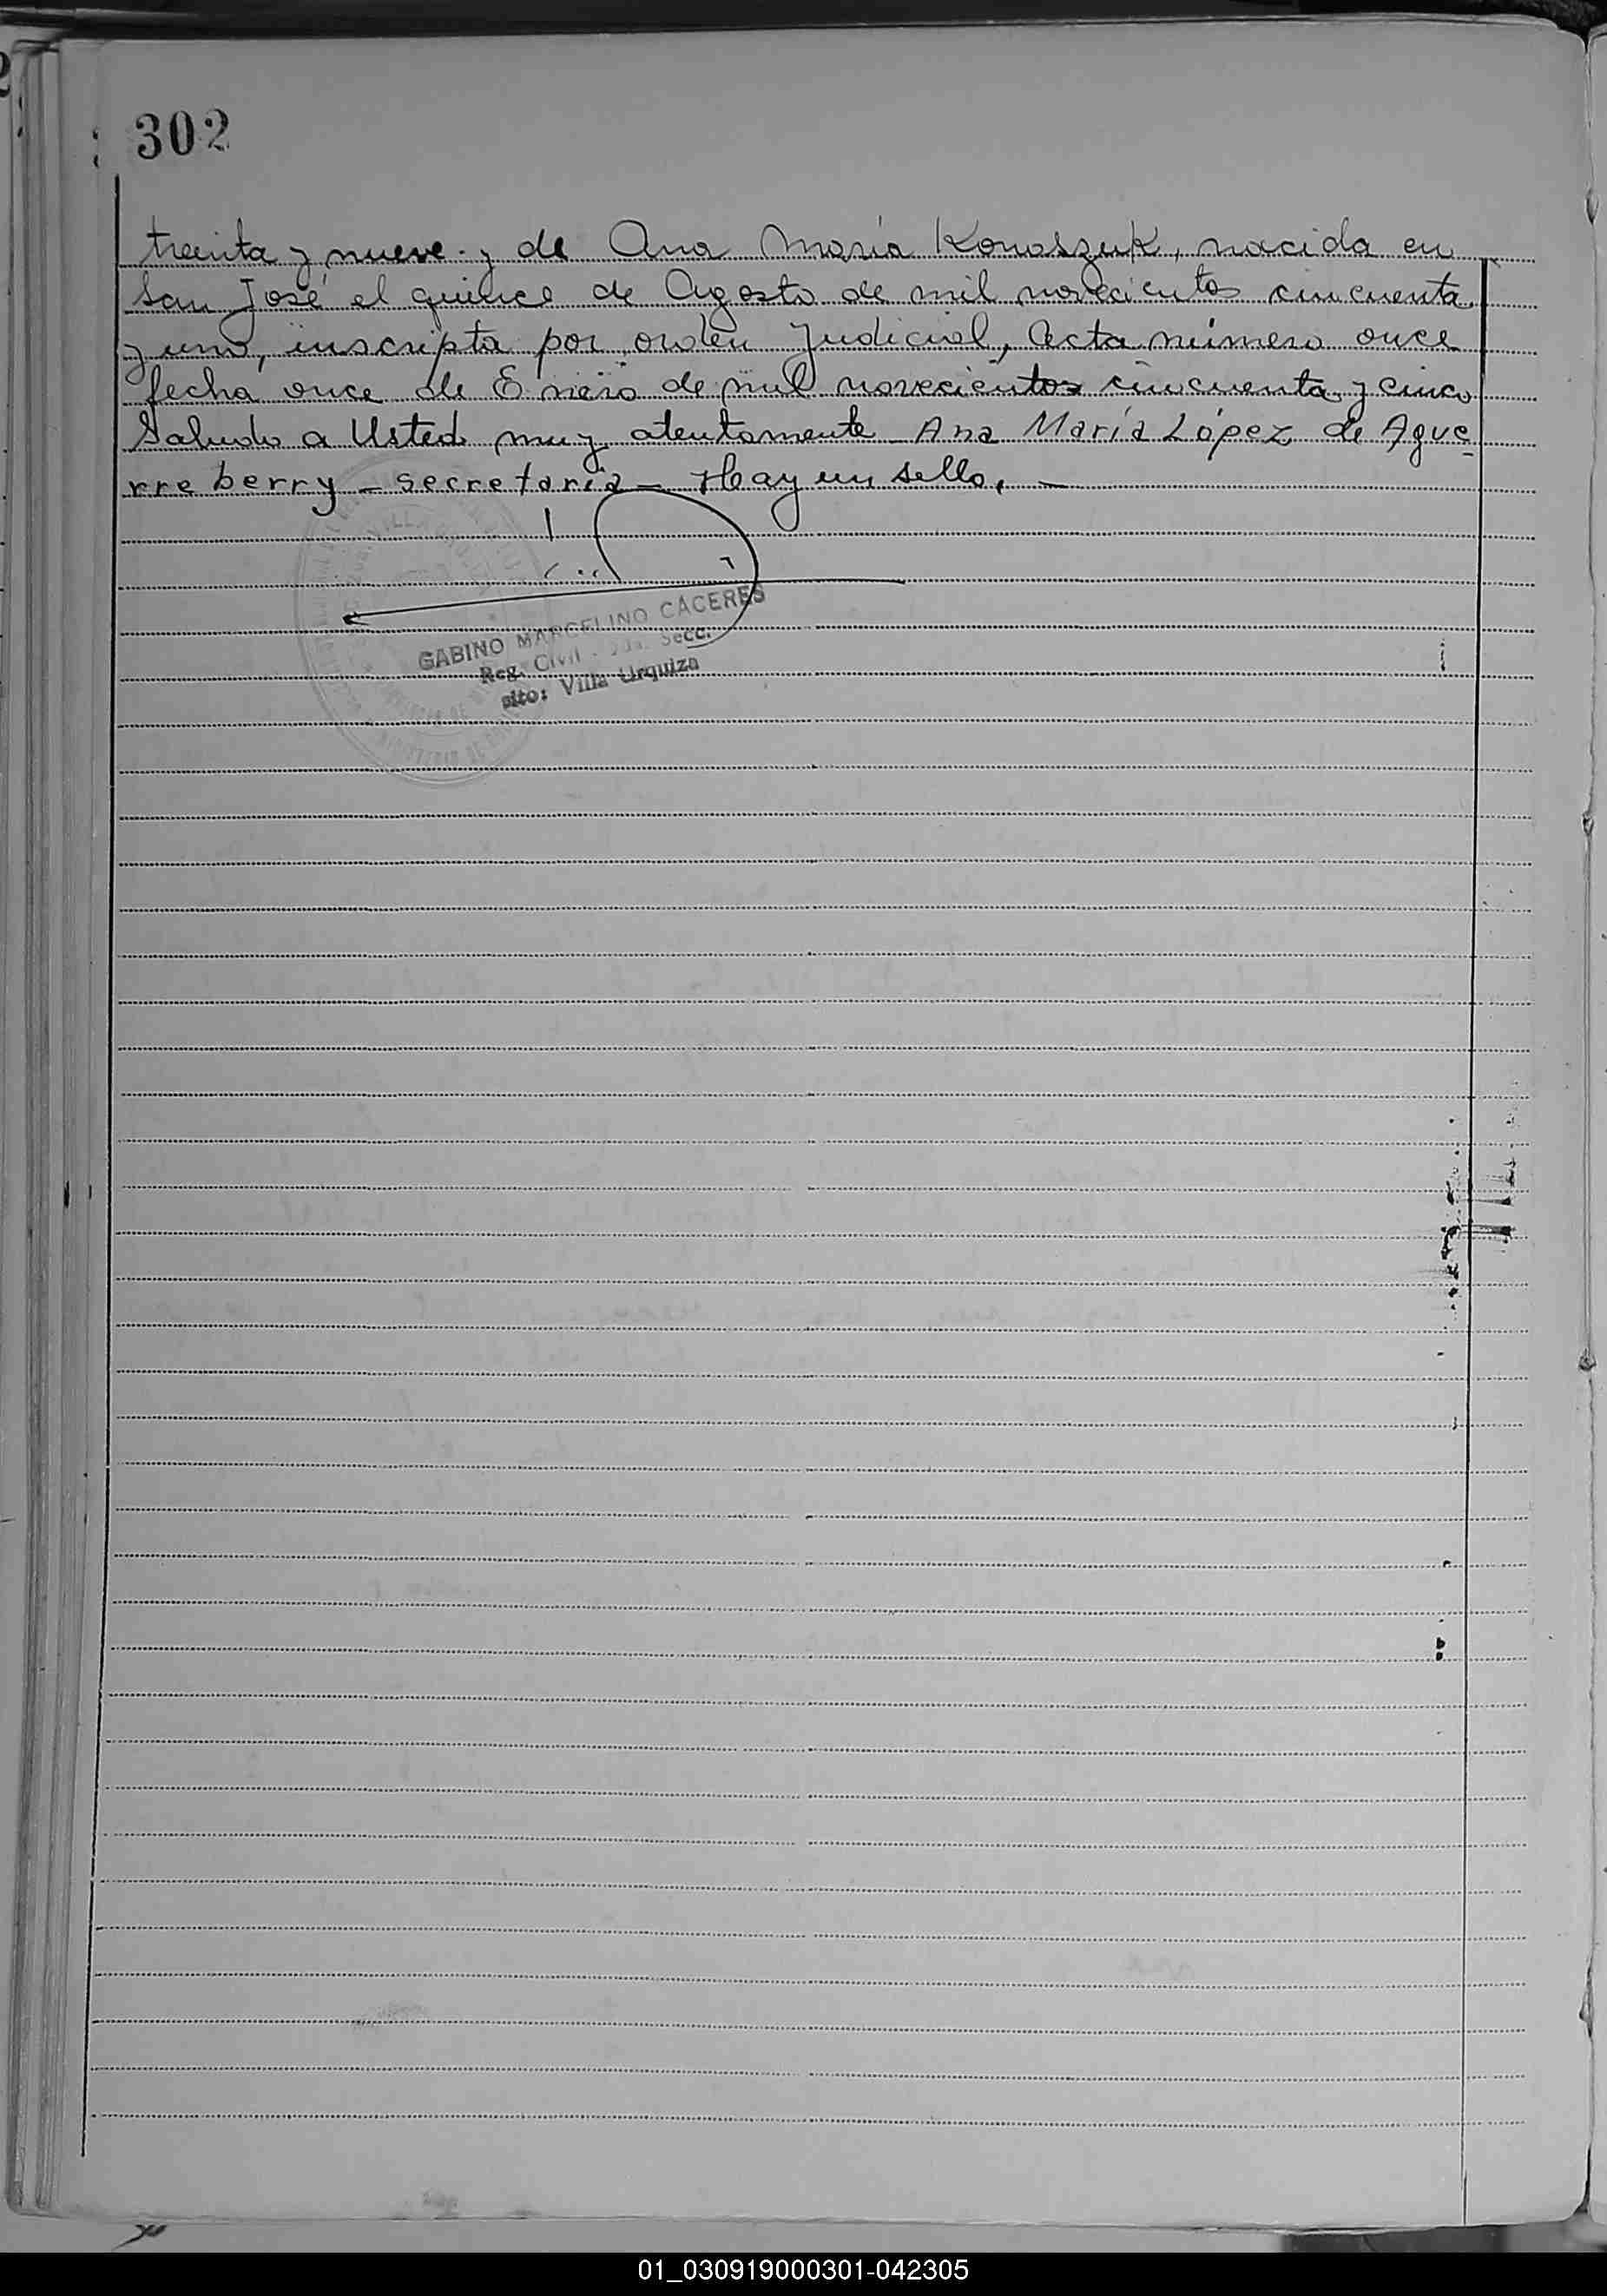 302
treinta y nueve. y de Ana María Konoszuk, nacida en
San José el quince de Agosto de mil novecientos cincuenta
y uno, inscripta por orden Judicial, Acta número once
fecha once de Enero de mil novecientos cincuenta y cinco
Saludo a Usted muy atentamente - Ana María López de Ague
rreberry - Secretaria - Hay un sello. -
GABINO MARCELINO CACERES
Reg. Civil Secc.
sito: Villa Urquiza
01_030919000301-042305